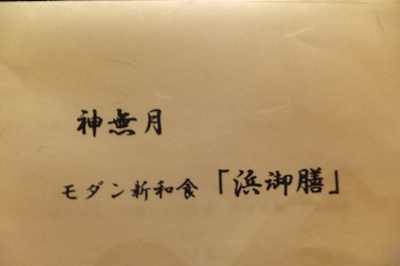 神無月
モダン新和食「浜御膳」